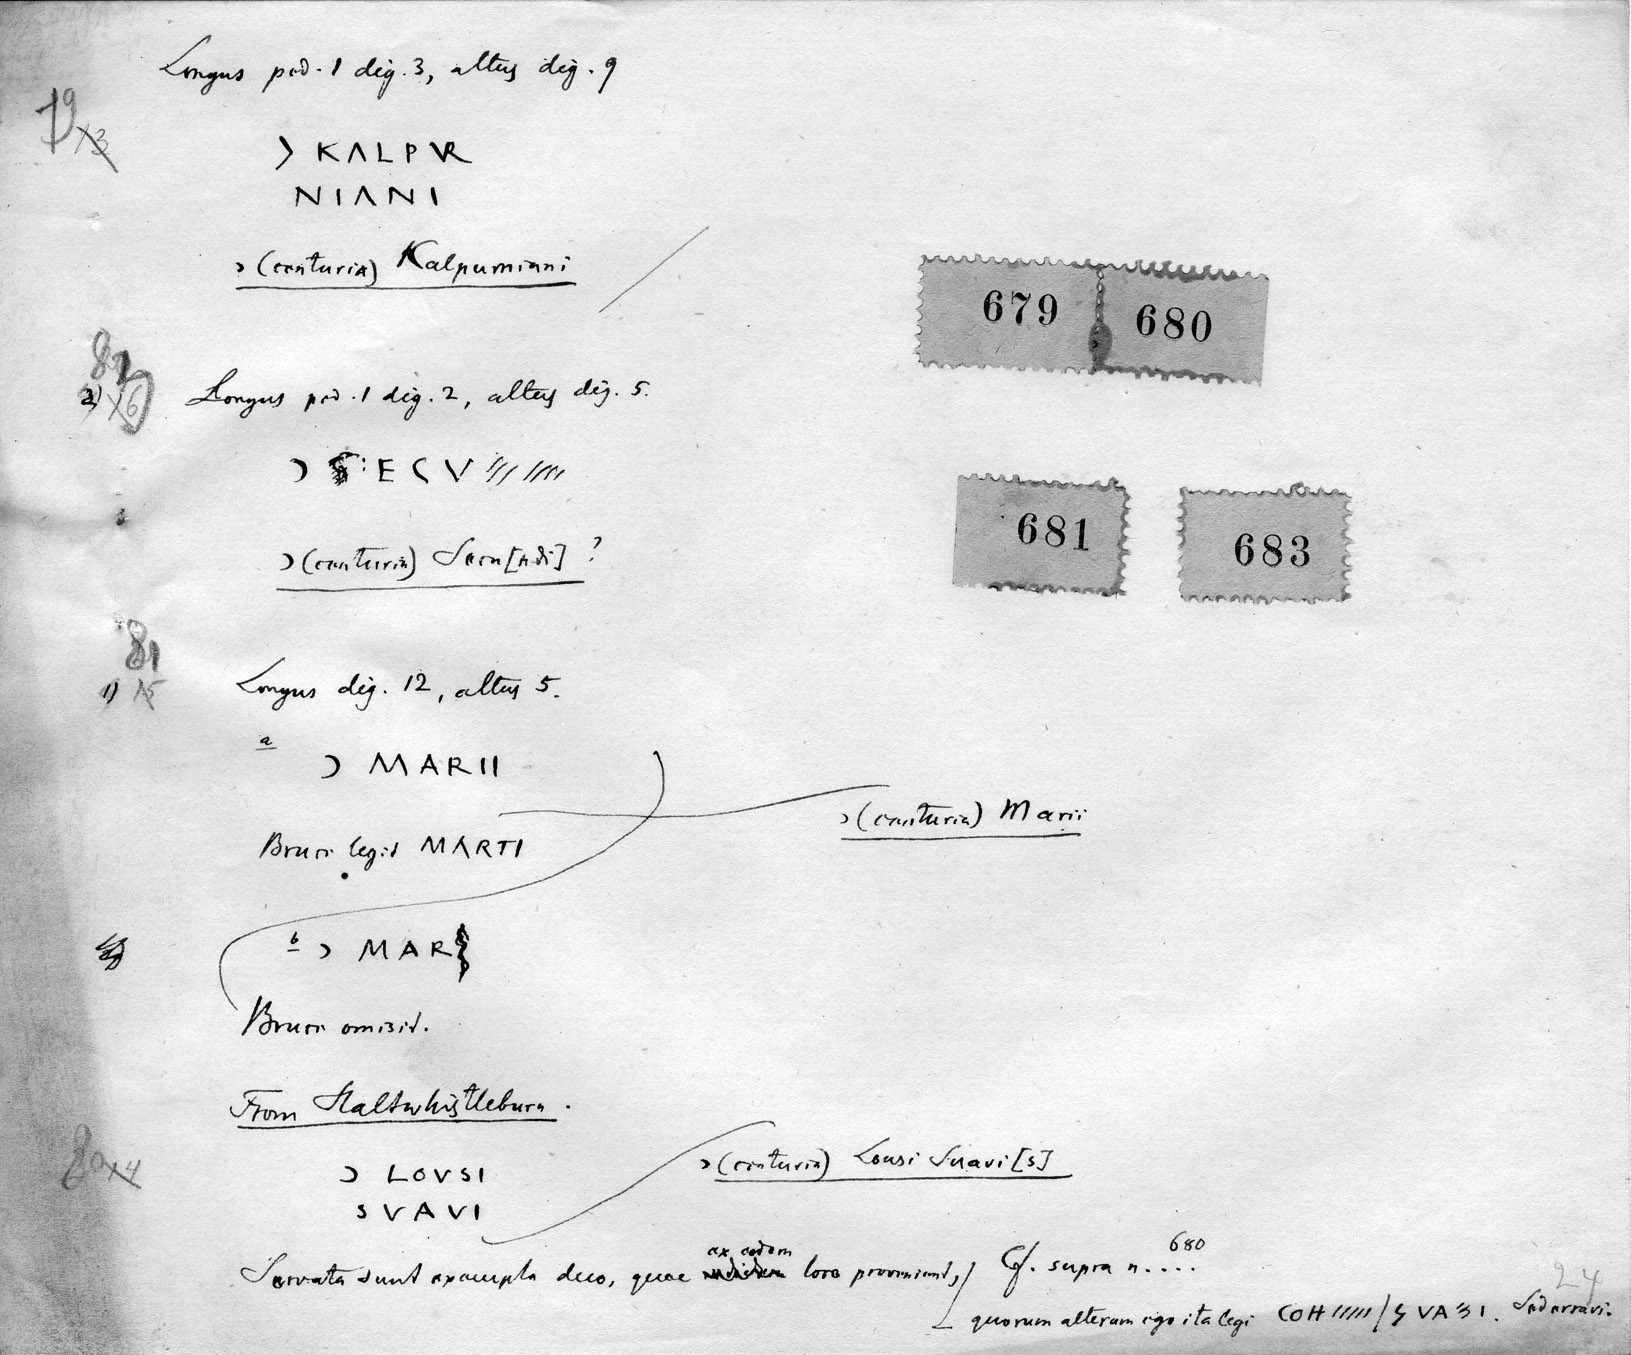 Longus ped. 1 dig. 3, altus dig. 9
79
> KALPVR
NIANI
> (centuria) Kalpurniani
679 680
82
2)
Longus ped. 1 dig. 2, altus dig. 5.
> ECV
> (centuria) Secu[ndi] ?
681 683
81
1) 15
Longus dig. 12, altus 5.
a
> MARII
> (centuria) Marii
Bruce legit MARTI
b > MAR
Bruce omisit.
From Haltwhistleburn.
80 4
> LOVSI
SVAVI
> (centuria) Lousi Suavi[s]
Servata sunt exempla duo, quae ex eodem loco proveniunt, Cf. supra n. 680 ....
quorum alterum ego ita legi COH ///// / SVA SI. Sed erravi.
24